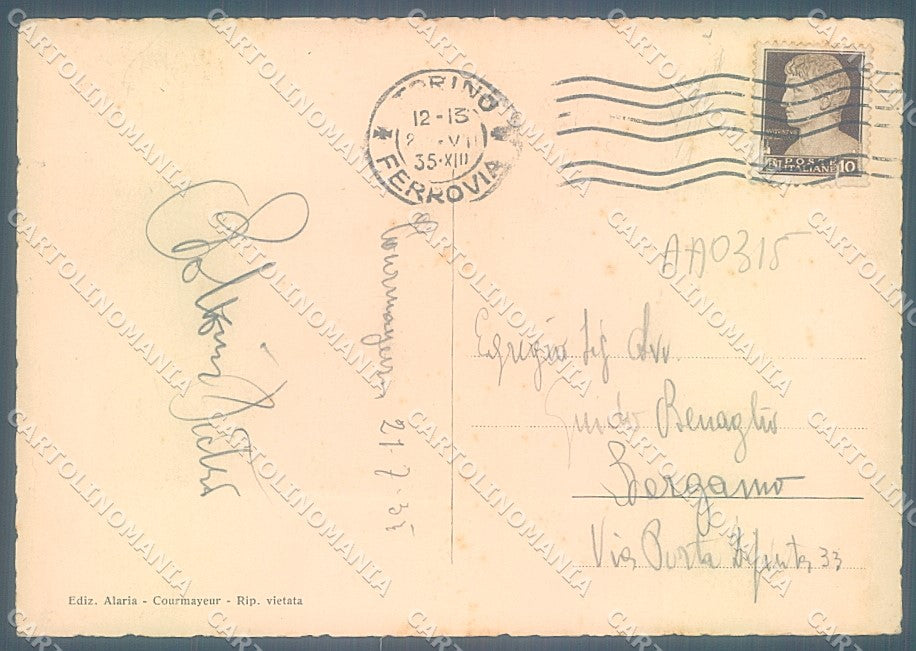 TORINO
12-13
VII
35·XIII
FERROVIA
POSTE
ITALIANE 10
AA0315
Courmayeur 21-7-35
Egregio Sig Avv.
Guido Benaglio
Bergamo
Via Porta Dipinta 33
Ediz. Alaria - Courmayeur - Rip. vietata
CARTOLINOMANIA